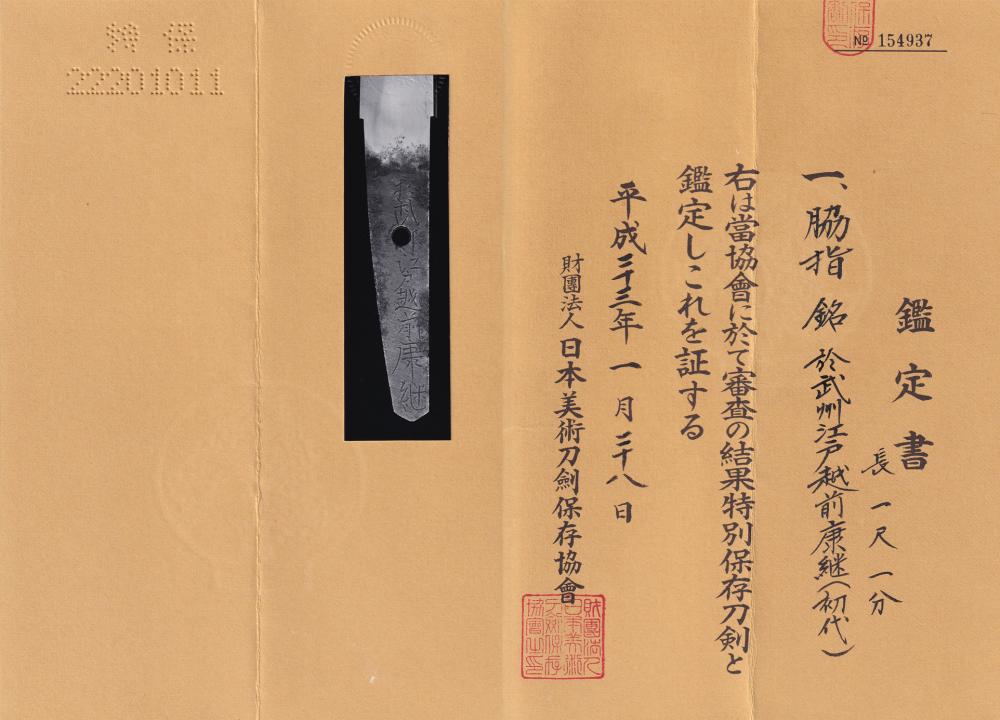 № 154937
鑑定書
一、脇指 銘 於武州江戸越前康継(初代)
長一尺一分
右は當協會に於て審査の結果特別保存刀剣と
鑑定しこれを証する
平成二十三年一月二十八日
財團法人日本美術刀劍保存協會
財團法人日本美術刀劍保存協會之印
於武州江戸越前康継
特保
22201011